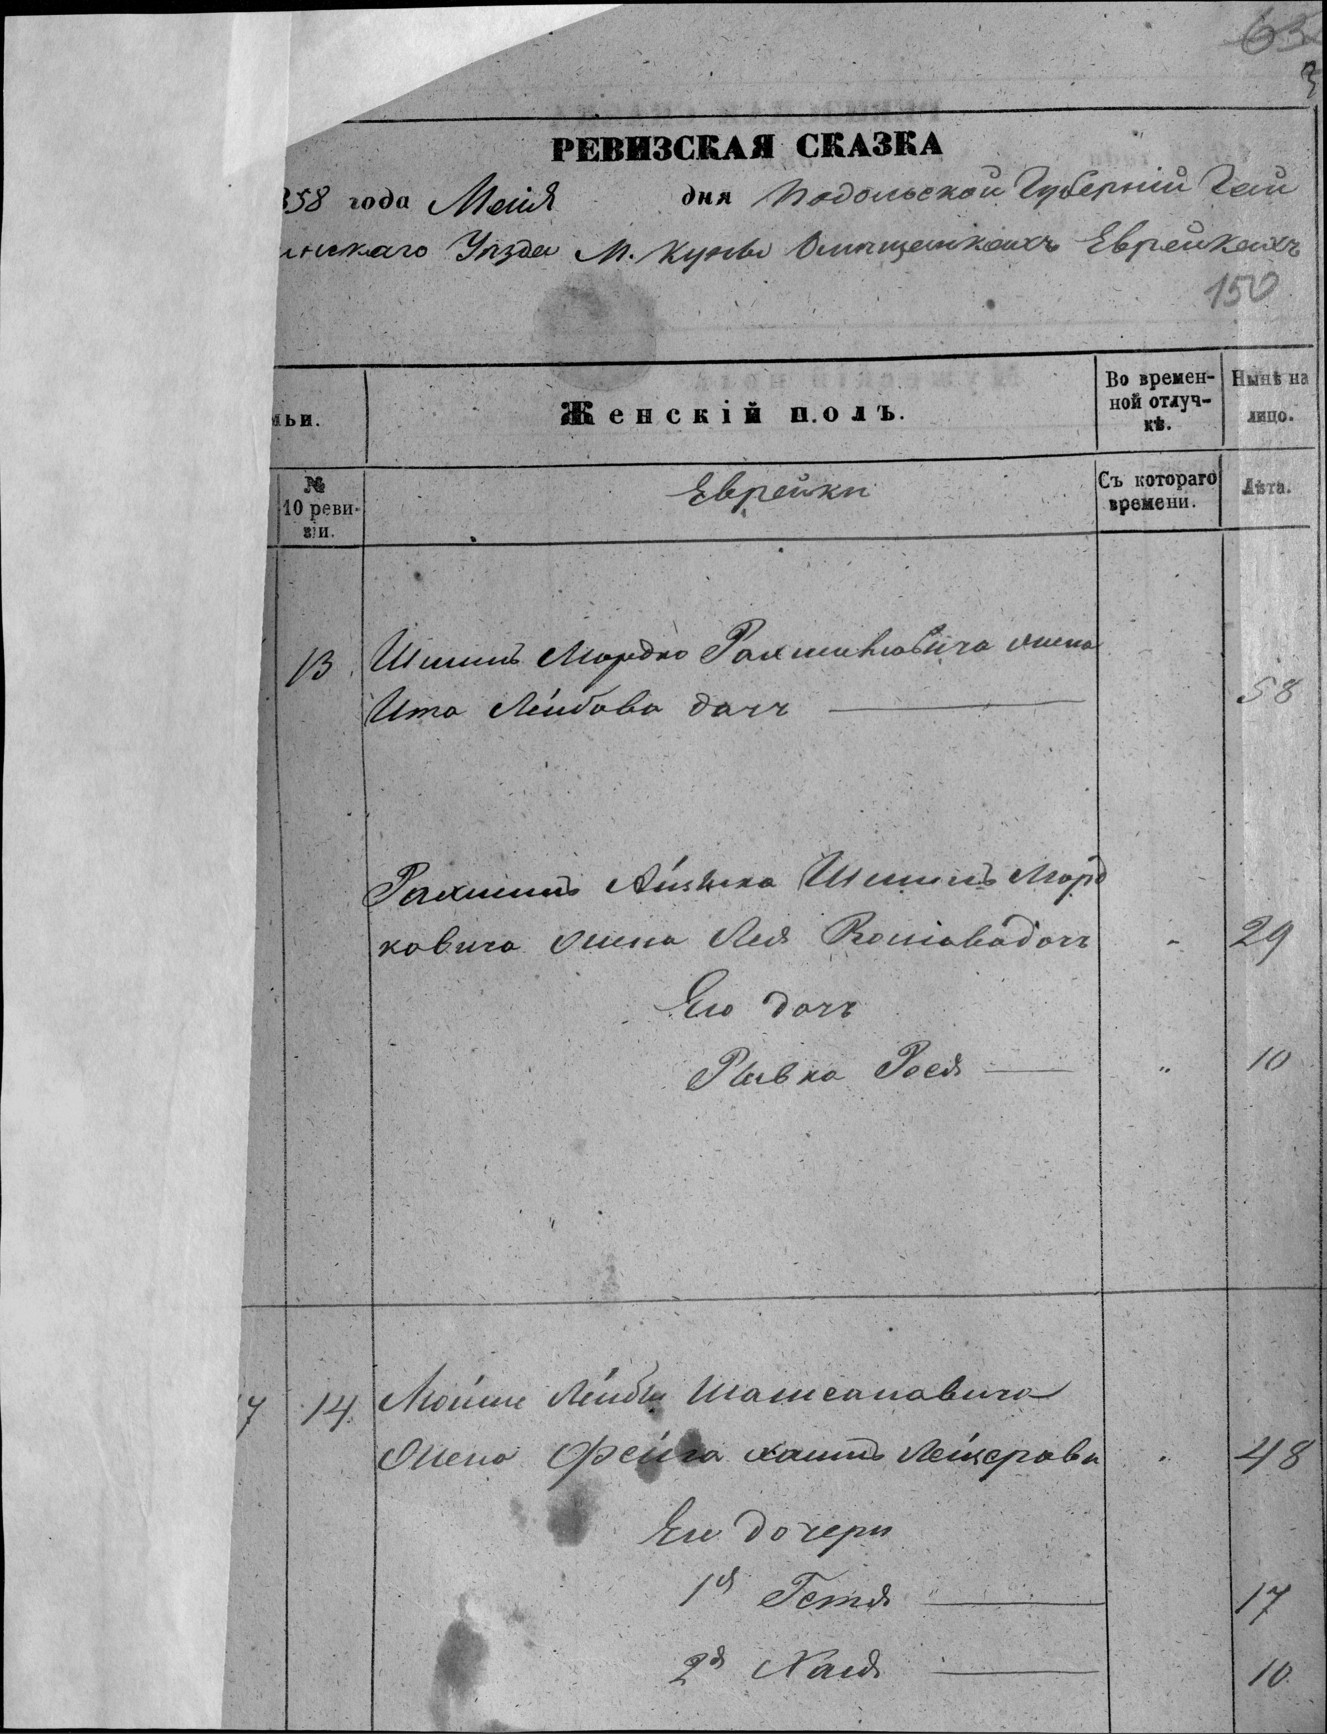 63
3
РЕВИЗСКАЯ СКАЗКА
858 года Маія дня Подольской Губерніи Гай
инскаго Уѣзда М. Куны Евреикахъ
150
мьи.
Женскій полъ.
Во времен-
ной отлуч-
кѣ.
Нынѣ на
лицо.
№
10 реви-
зіи.
Еврейки
Съ котораго
времени.
Лѣта.
13
Мордко Рахмиловича жена
Ита Лейбова дочь
58
Рахмиль Айзика Морд
ковича жена Лея дочь 29
Его дочь
Рывка Рося 10
7 14 Мойше Лейбы
жена Фейга Лейзерова 48
Его дочери
1я Гетя 17
2я Хая 10